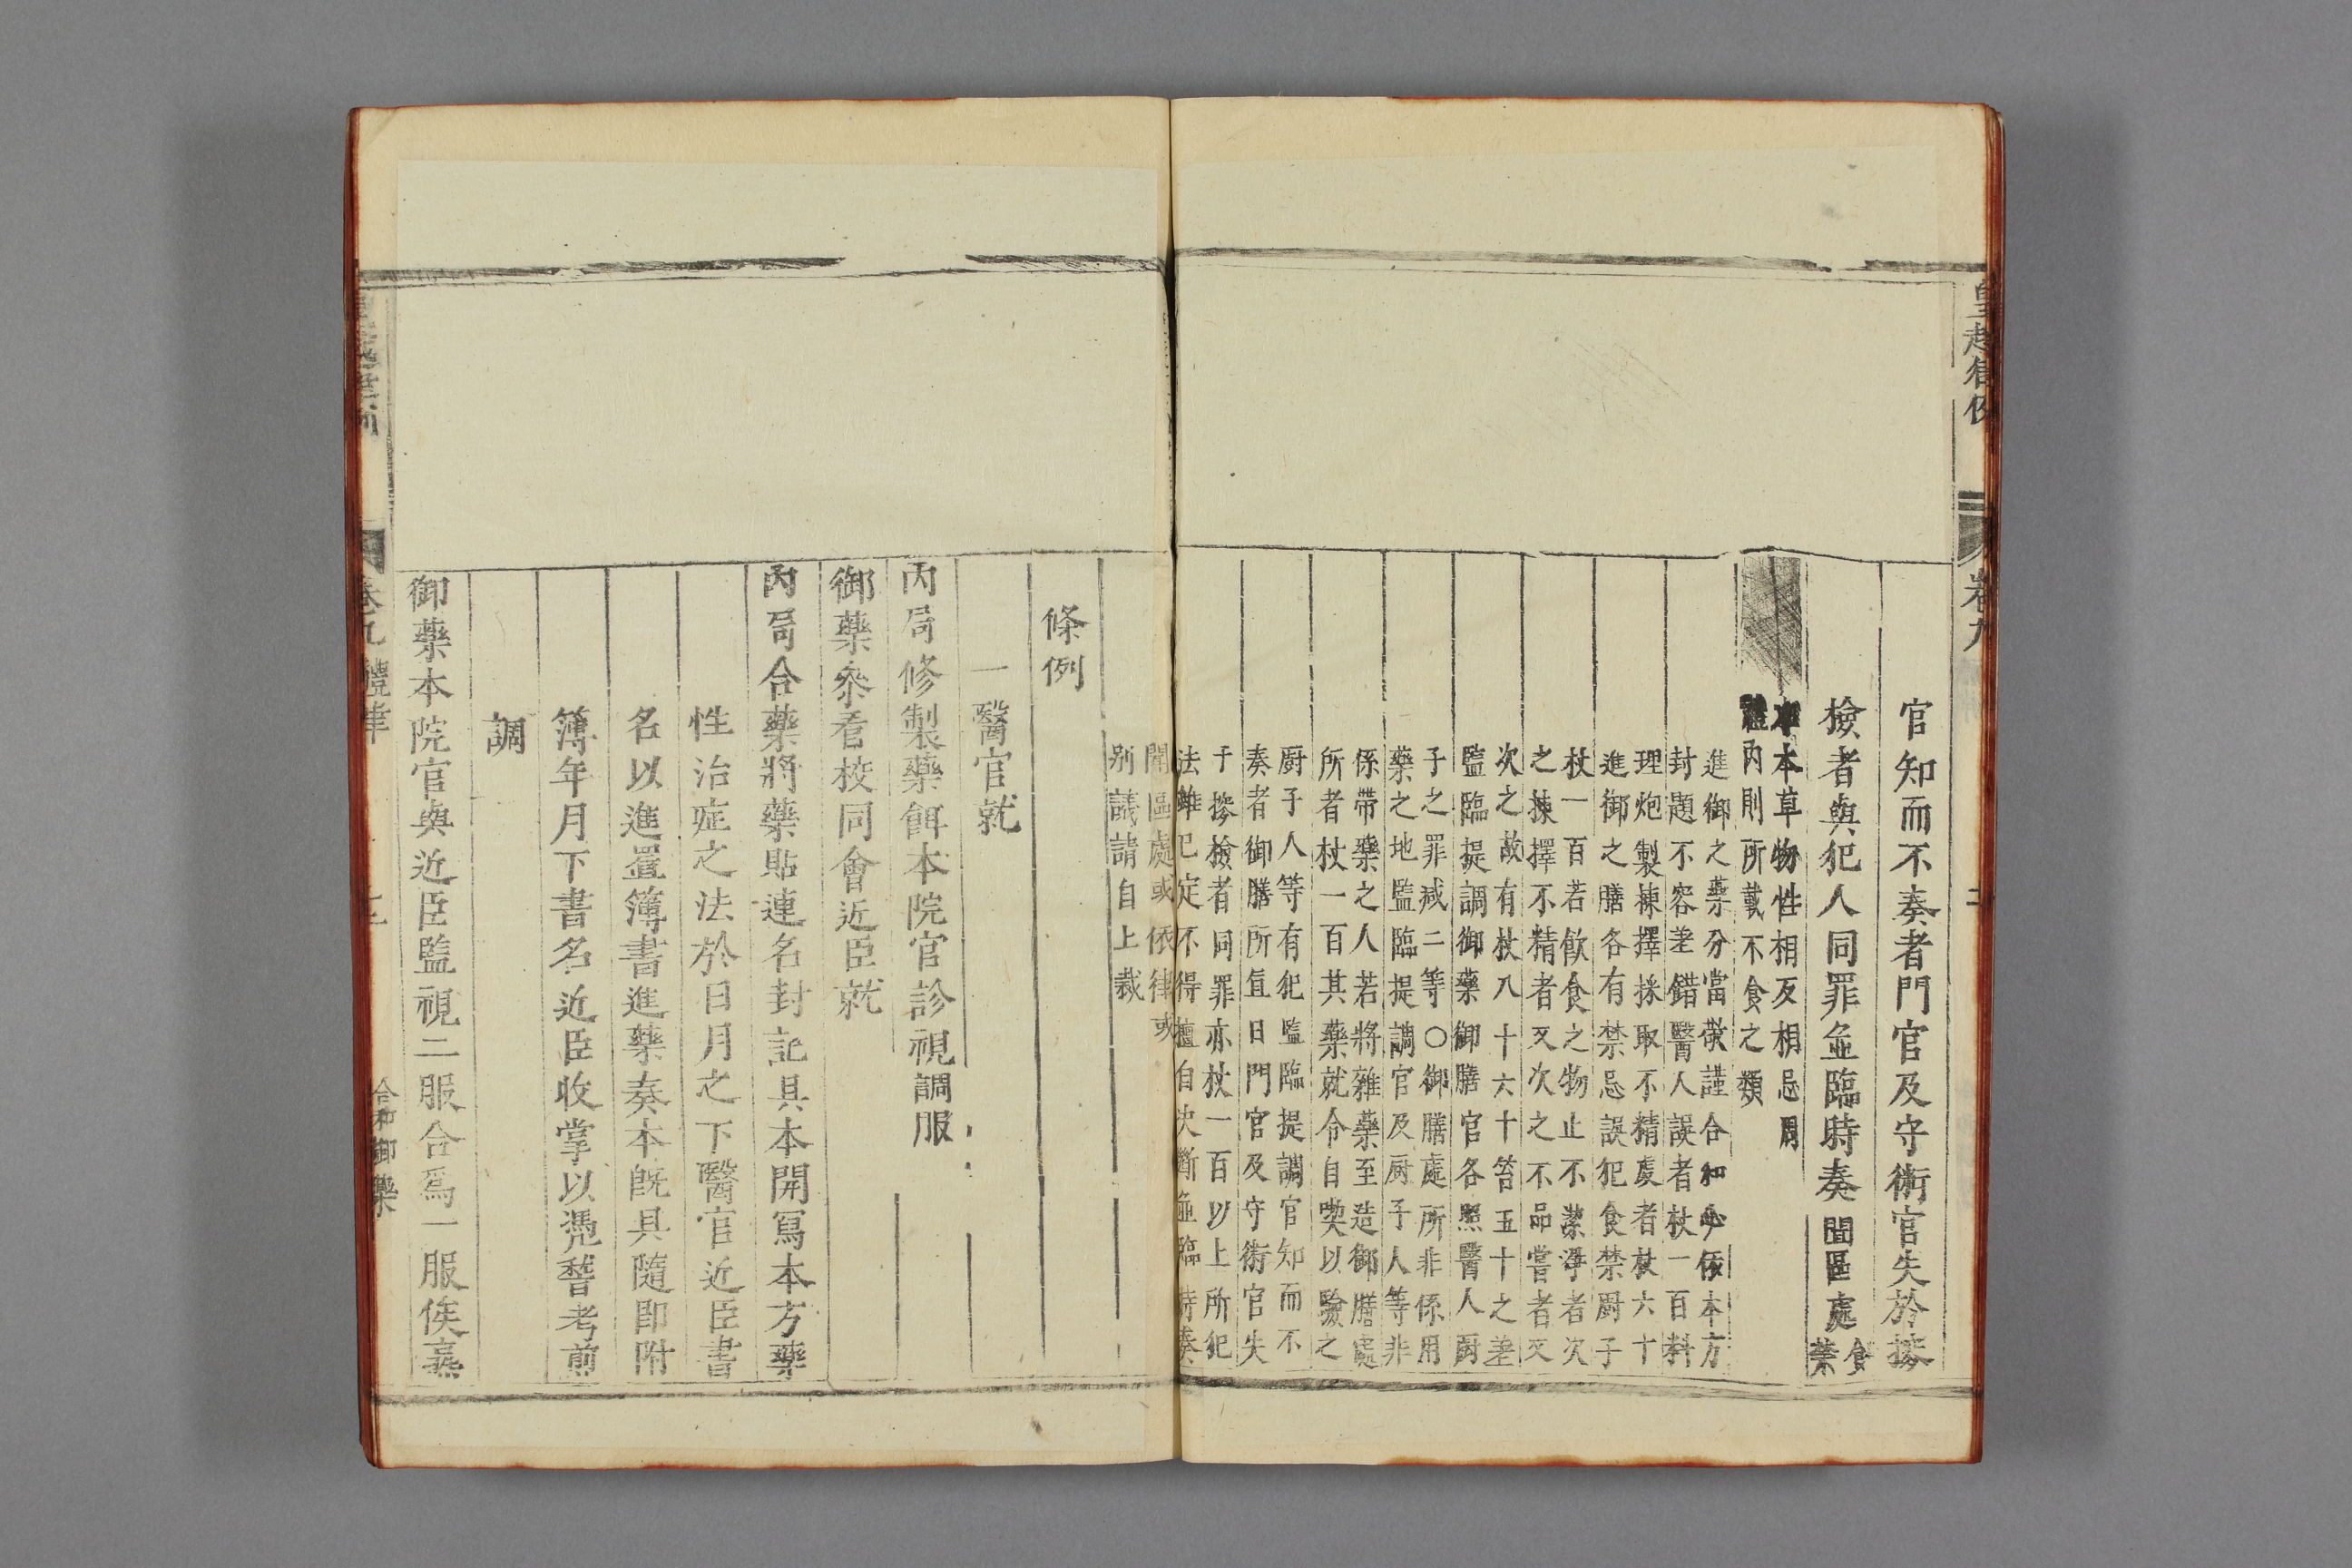 皇越律例
卷九
官知而不奏者門官及守衛官失於搜
檢者與犯人同罪並臨時奏聞區處食禁
本草物性相反相忌周
禮內則所載不食之類
進御之藥分當敬謹合和必依本方
封題不容差錯醫人誤者杖一百料
理炮製揀擇採取不精虔者杖六十
進御之膳各有禁忌誤犯食禁厨子
杖一百若飲食之物止不潔淨者次
之揀擇不精者又次之不品嘗者又
次之故有杖八十六十笞五十之差
監臨提調御藥御膳官各照醫人厨
子之罪减二等〇御膳處所非係用
藥之地監臨提調官及厨子人等非
係帶藥之人若將雜藥至造御膳處
所者杖一百其藥就令自喫以驗之
厨子人等有犯監臨提調官知而不
奏者御膳所直日門官及守衛官失
于搜檢者同罪亦杖一百以上所犯
法雖已定不得擅自决斷並臨時奏
聞區處或依律或
别議請自上裁
條例
一醫官就
內局修製藥餌本院官診視調服
御藥叅看校同會近臣就
內局合藥將藥貼連名封記具本開寫本方藥
性治症之法於日月之下醫官近臣書
名以進置簿書進藥奏本旣具隨即附
簿年月下書名近臣收掌以憑稽考煎
調
御藥本院官與近臣監視二服合爲一服俟熹
卷九 禮律
合和御藥